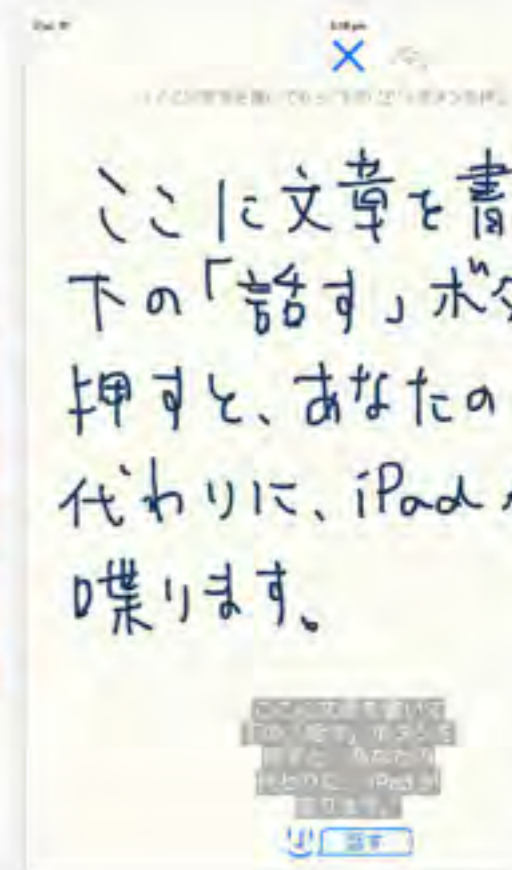 ここに文章を書
下の「話す」ボタ
押すと、あなたの
代わりに、iPad
喋ります。
ここに文章を書いて
下の「話す」ボタンを
押すと、あなたの
代わりに、iPadが
喋ります。
話す